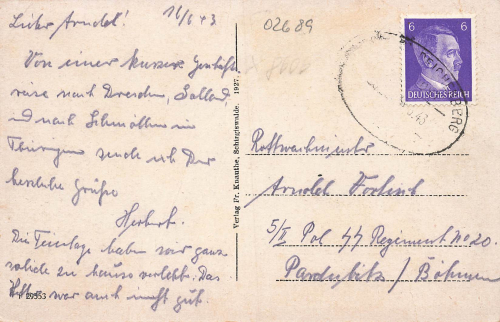 Lieber Arnold! 16/6 43
Von einer kurzen Geschäfts-
reise nach Dresden,
und nach Schmölln in
Thüringen sende ich Dir
herzliche Grüße
Herbert.
Die Feiertage haben wir ganz
solide zu hause verlebt. Das
war auch nicht gut.
29553
Verlag Fr. Knauthe, Schirgiswalde. 1927.
02689
6 6
DEUTSCHES REICH
BERG
.43
Rottwachmeister
Arnold
5/II Pol SS Regiment No 20.
Pardubitz / Böhmen